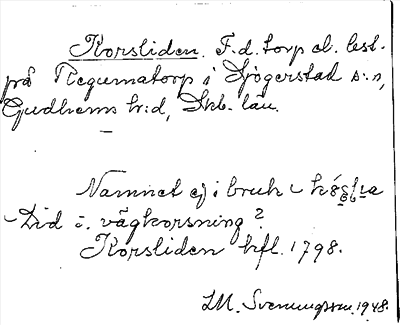 Korsliden. F.d. torp el. lest.
på Regumatorp i Sjögerstad s:n,
Gudhems hr:d, Skb. län.
Namnet ej i bruk
Vid i. vägkorsning?
Korsliden hfl. 1798.
LM. Svenungsson. 1948.